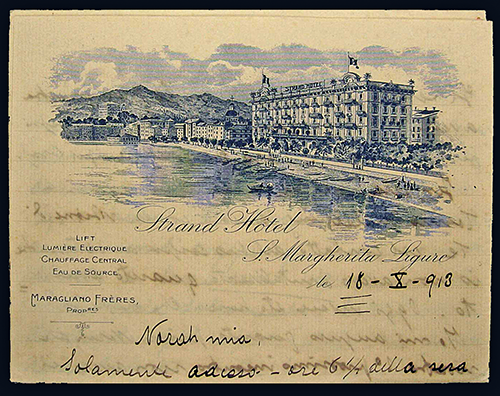 STRAND HOTEL
Strand Hôtel
S. Margherita Ligure
LIFT
LUMIÈRE ELECTRIQUE
CHAUFFAGE CENTRAL
EAU DE SOURCE
MARAGLIANO FRÈRES,
PROPRES
le 18 - X - 913
Norah mia,
Solamente adesso - ore 6¼ della sera